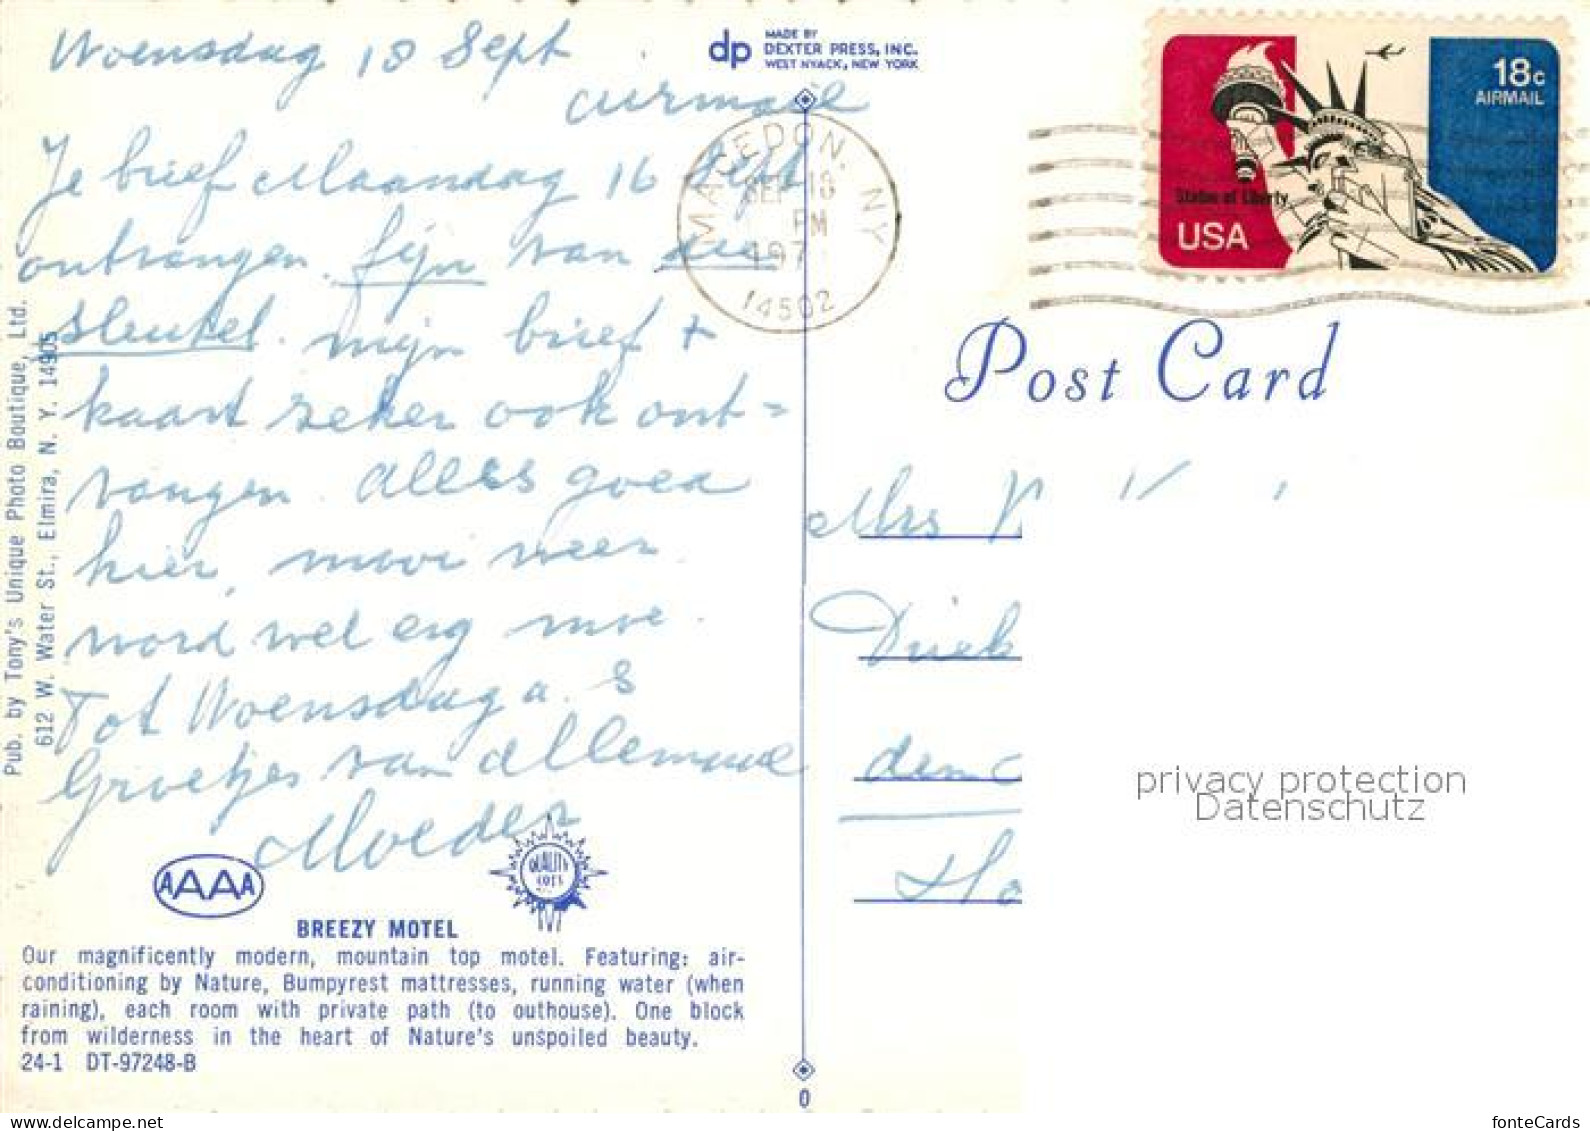 Woensdag 18 Sept
airmail
Je brief Maandag 16 Sept
ontvangen. fijn van die
sleutel. mijn brief +
kaart zeker ook ont=
vangen. Alles goed
hier, mooi weer
word wel erg moe.
Tot Woensdag a. s
Groetjes van allemaal
Moeder
dp MADE BY
DEXTER PRESS, INC.
WEST NYACK, NEW YORK
MACEDON, NY
SEP 18
PM
197
14502
18c
AIRMAIL
Statue of Liberty
USA
Post Card
Mrs
den
privacy protection
Datenschutz
Pub. by Tony's Unique Photo Boutique, Ltd.
612 W. Water St., Elmira, N. Y. 14905
AAAA
QUALITY
BREEZY MOTEL
Our magnificently modern, mountain top motel. Featuring: air-
conditioning by Nature, Bumpyrest mattresses, running water (when
raining), each room with private path (to outhouse). One block
from wilderness in the heart of Nature's unspoiled beauty.
24-1 DT-97248-B
0
www.delcampe.net
fonteCards